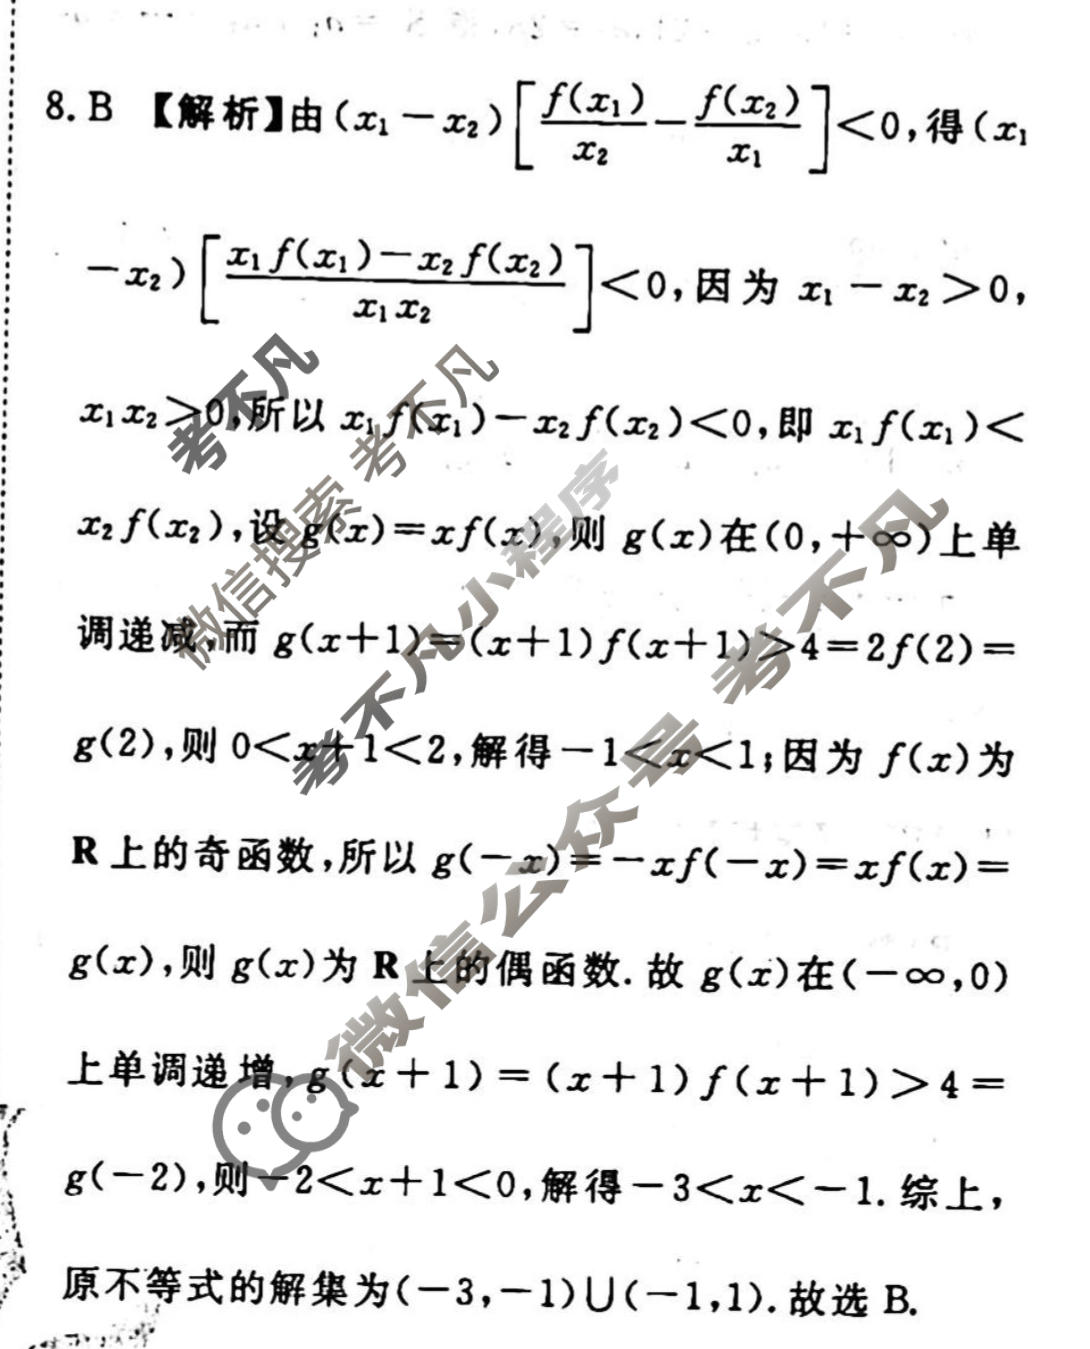 8. B 【解析】由(x₁-x₂)[f(x₁)/x₂-f(x₂)/x₁]<0,得(x₁
-x₂)[(x₁f(x₁)-x₂f(x₂))/(x₁x₂)]<0,因为 x₁-x₂>0,
x₁x₂>0,所以 x₁f(x₁)-x₂f(x₂)<0,即 x₁f(x₁)<
x₂f(x₂),设 g(x)=xf(x),则 g(x)在(0,+∞)上单
调递减,而 g(x+1)=(x+1)f(x+1)>4=2f(2)=
g(2),则 0<x+1<2,解得-1<x<1;因为 f(x)为
R 上的奇函数,所以 g(-x)=-xf(-x)=xf(x)=
g(x),则 g(x)为 R 上的偶函数.故 g(x)在(-∞,0)
上单调递增,g(x+1)=(x+1)f(x+1)>4=
g(-2),则-2<x+1<0,解得-3<x<-1.综上,
原不等式的解集为(-3,-1)∪(-1,1).故选 B.
考不凡
微信搜索 考不凡
考不凡小程序
微信公众号 考不凡